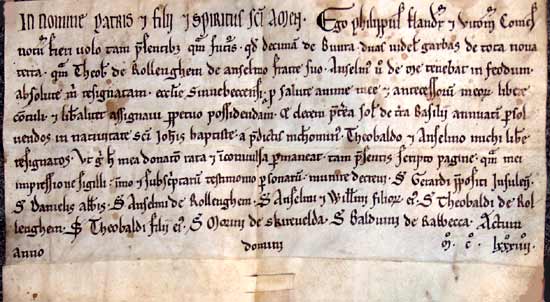 In nomine Patris ⁊ filii ⁊ spiritus sc̄i Amen. Ego philippus flandr̄ ⁊ Virom̄ Comes
notū fieri volo tam p̄sentibus qm̄ futuris. qđ decimā de duas videl̄ garbas de tota nova
terra. qm̄ Theob̄ de Rollenghem de anselmo fratre suo. Anselm̄ u̅ de me tenebat in feodum.
absolute m̄ resignatam. ecclie Sinnebecensi p̄ salute anime mee ⁊ antecessorum meoꝝ libere
contuli ⁊ lib̄alit̄ assignavi ppetuo possidendam. & decem p̄terea sol̄ de t̄ra Basilii annuatim psol
vendos in nativitate sc̄i Joh̄is baptiste. a p̄dictis hominib. Theobaldo ⁊ Anselmo michi lib̄e
resignatos. Vt ḡ h̄ mea donatio rata ⁊ inconvulsa pmaneat. tam p̄sentis scripto pagine. qm̄ mei
impressione sigilli. immo ⁊ subscriptarū testimonio psonarū. munire decrevi. S Gerardi p̄positi Insulen̄.
S Danielis abb̄is. S Anselmi de Rollenghem. S Anselmi ⁊ Willm̄i filioꝝ ei. S Theobaldi de Rol
lenghem. S Theobaldi filii ei. S de Skirvelda. S Balduini de Actum
anno domini m̊. c̊. lxxxiiii